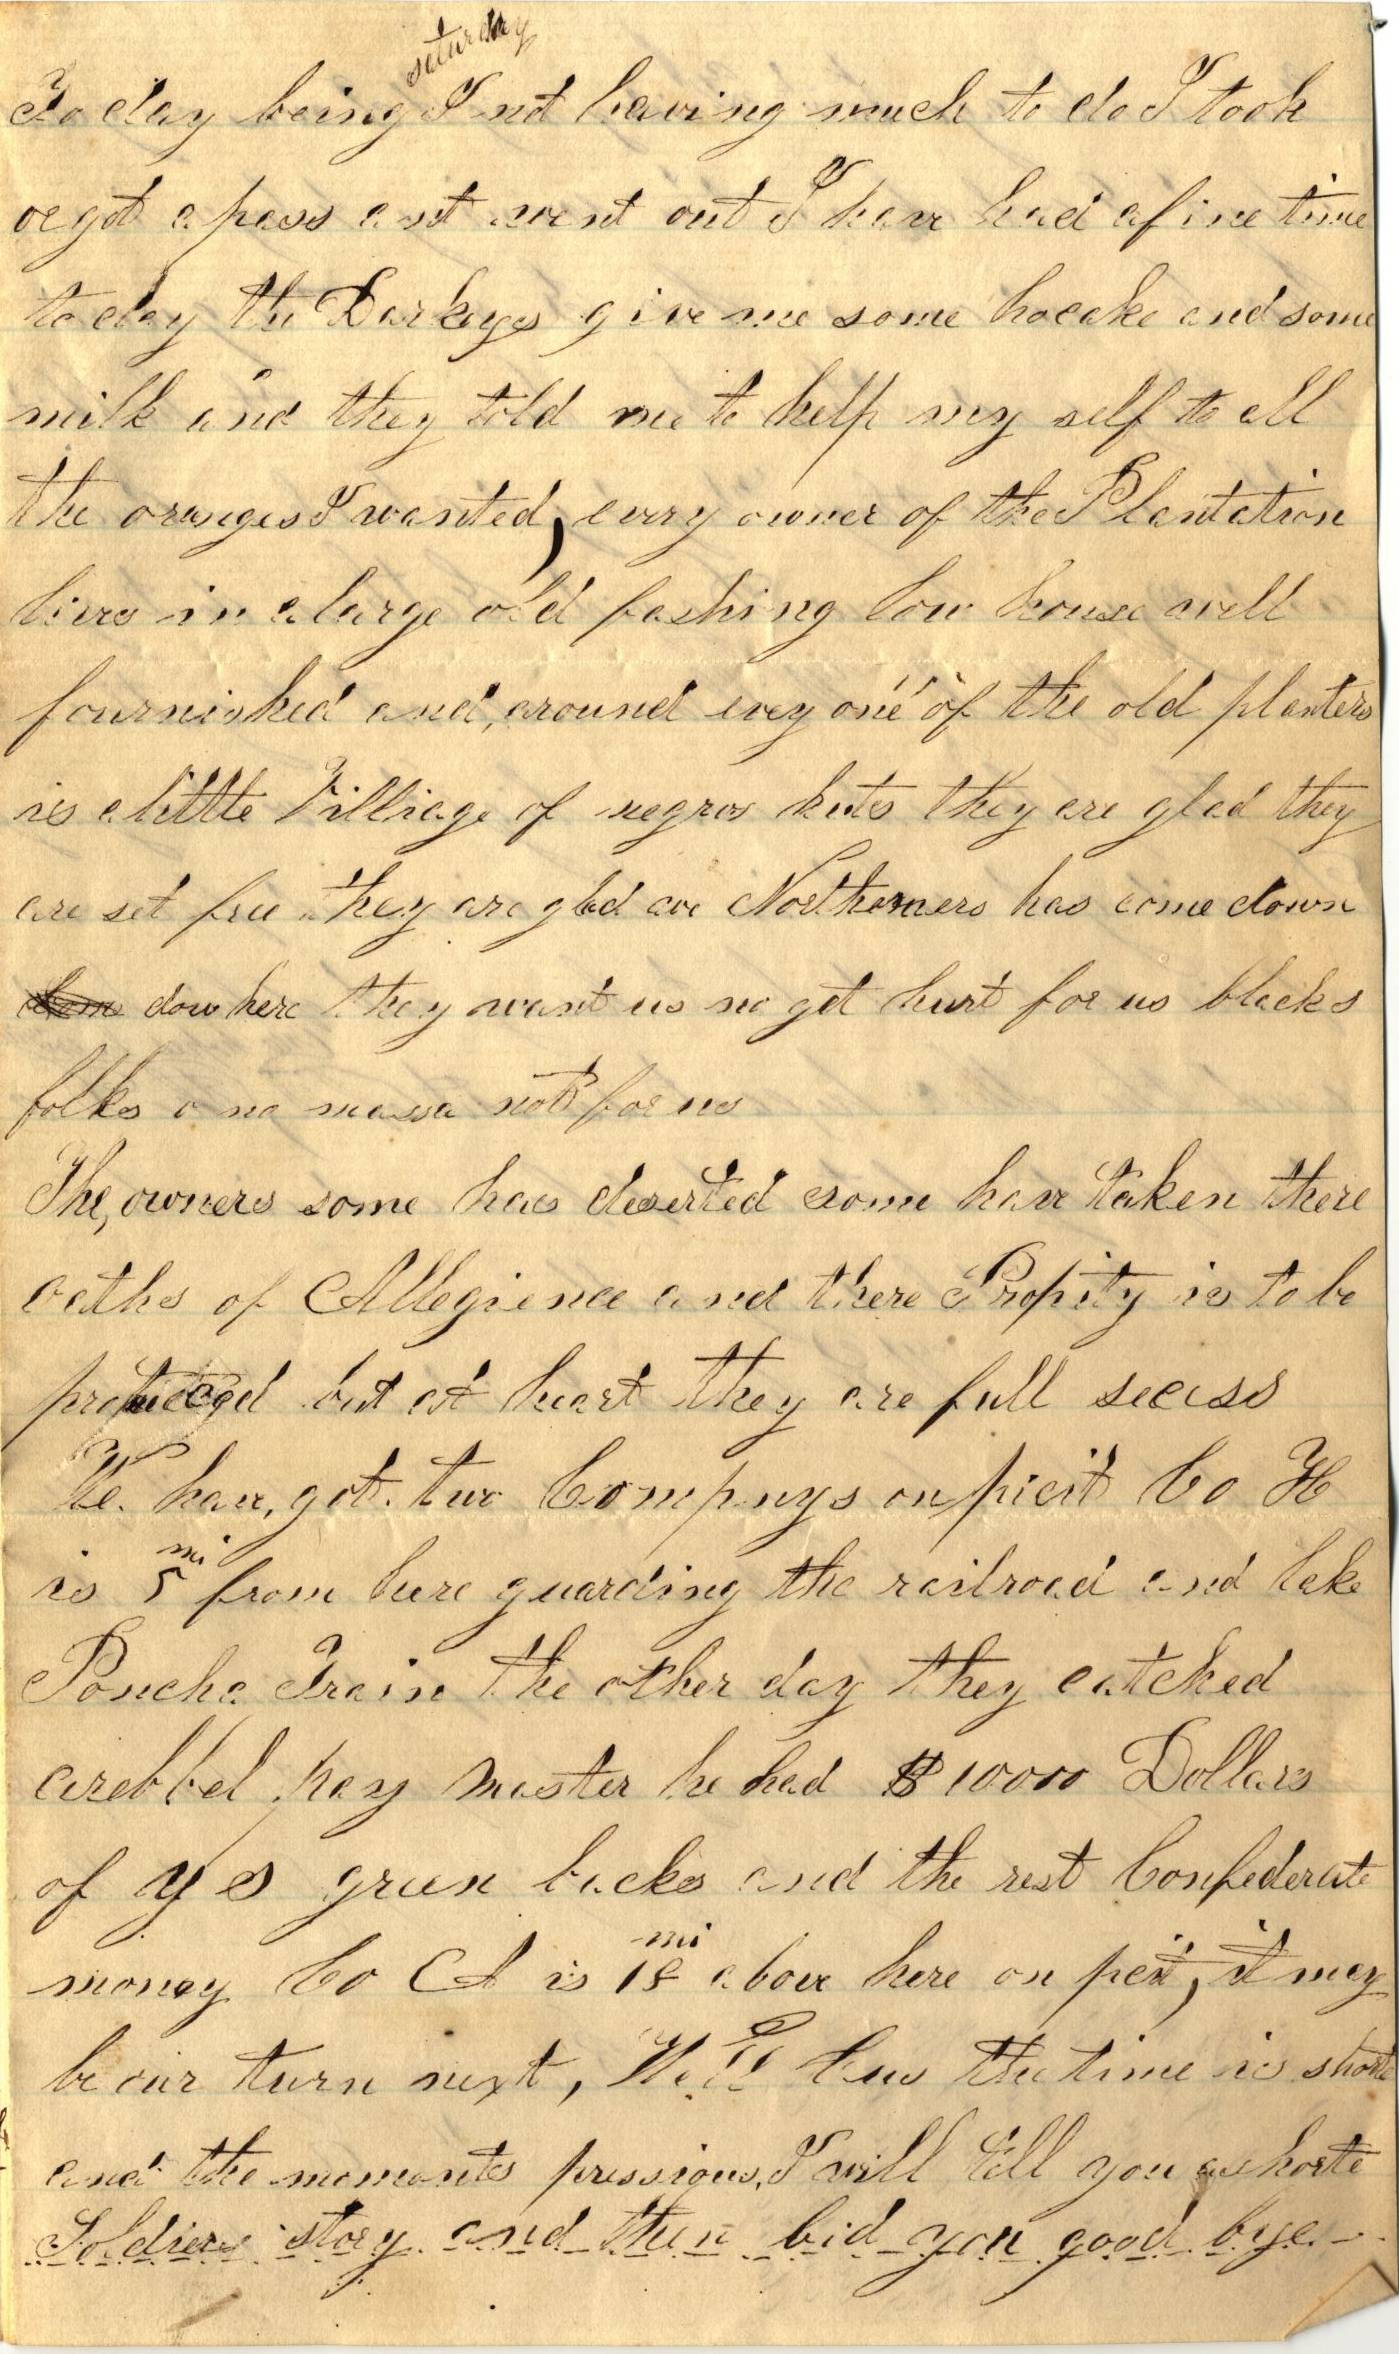 saturday
To day being I not having much to do I took
or got a pass ant went out I have had a fine time
to day the Darkeys give me some hocake and some
milk and they told me to help my self to all
the oranges I wanted, every owner of the Plantation
lives in a large old fashing low house well
fournished and, around evey one of the old planters
is a little Villiage of negros huts they are glad they
are set free they are glad we Northerners has come down
dow here they want us no get hurt for us blacks
folks o no massa not for us
The, owners some has deserted some have taken there
oaths of Allegience and there Propity is to be
but at heart they are full secess
We have, got. two Compnys on picit Co H
is 5 mi from here guarding the railroad and lake
Poncha Train the other day they catched
a rebbel pay master he had $10000 Dollars
of green backs and the rest Confederate
money Co A is 18 mi above here on picit, it may
be our turn next, Well the time is short
and the momonts pressious, I will tell you a shorte
Soldiers story and then bid you good bye